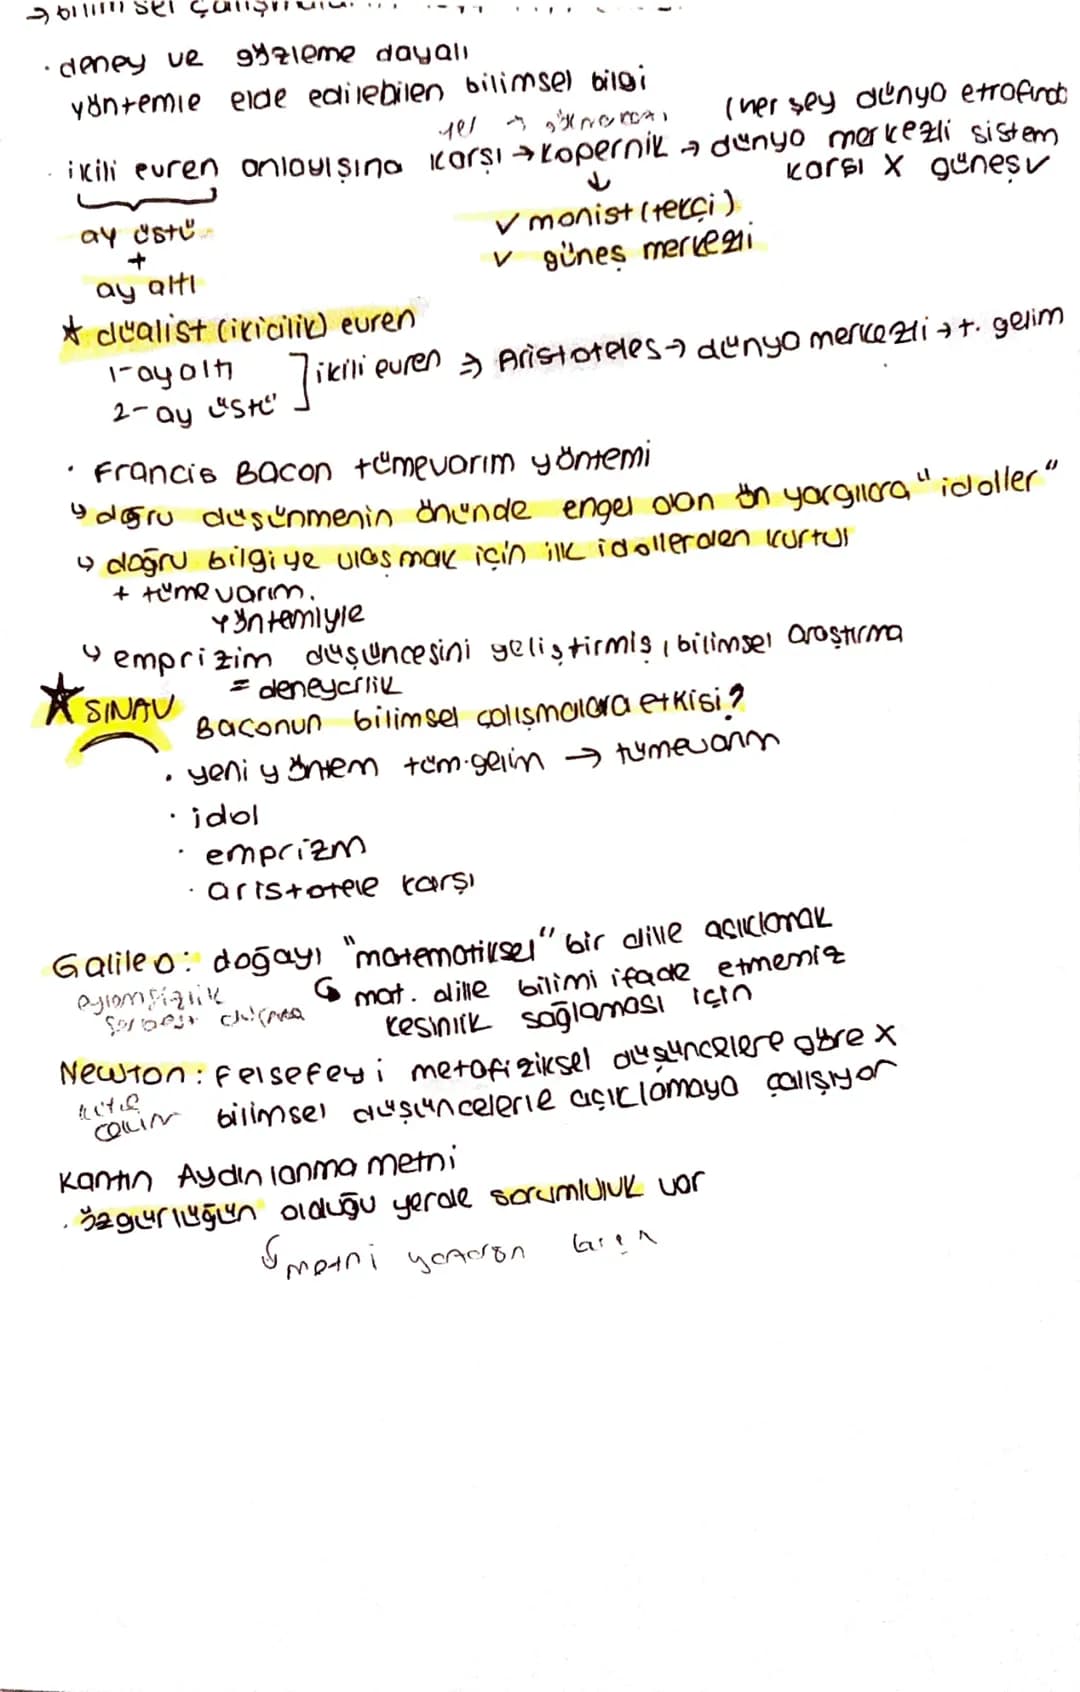 → bilimsel
· deney ve gözleme dayalı
yöntemle elde edilebilen bilimsel bilgi
(her şey dünya etrafında
· ikili evren anlayışına karşı → Kopernik → dünya merkezli sistem
karşı X güneş ✓
ay üstü
+
ay altı
↓
✓ monist (tekçi)
✓ güneş merkezli
★ dualist (ikicilik) evren
1- ay altı
2- ay üstü
] ikili evren ⇒ Aristoteles → dünya merkezli → t. gelim
· Francis Bacon tümevarım yöntemi
↳ doğru düşünmenin önünde engel olan ön yargılara "idoller"
↳ doğru bilgiye ulaşmak için ilk idollerden kurtul
+ tümevarım.
yöntemiyle
↳ emprizim düşüncesini geliştirmiş, bilimsel araştırma
= deneycilik
★ SINAV
Baconun bilimsel çalışmalara etkisi?
· yeni yöntem tüm.gelim → tümevarım
· idol
· emprizm
· aristotele karşı
Galileo: doğayı "matematiksel" bir dille açıklamak
↳ mat. dille bilimi ifade etmemiz
kesinlik sağlaması için
eylemsizlik
serbest düşme
Newton: Felsefeyi metafiziksel düşüncelere göre X
bilimsel düşüncelerle açıklamaya çalışıyor
kütle
Kantın Aydınlanma metni
· özgürlüğün olduğu yerde sorumluluk var
↓ metni